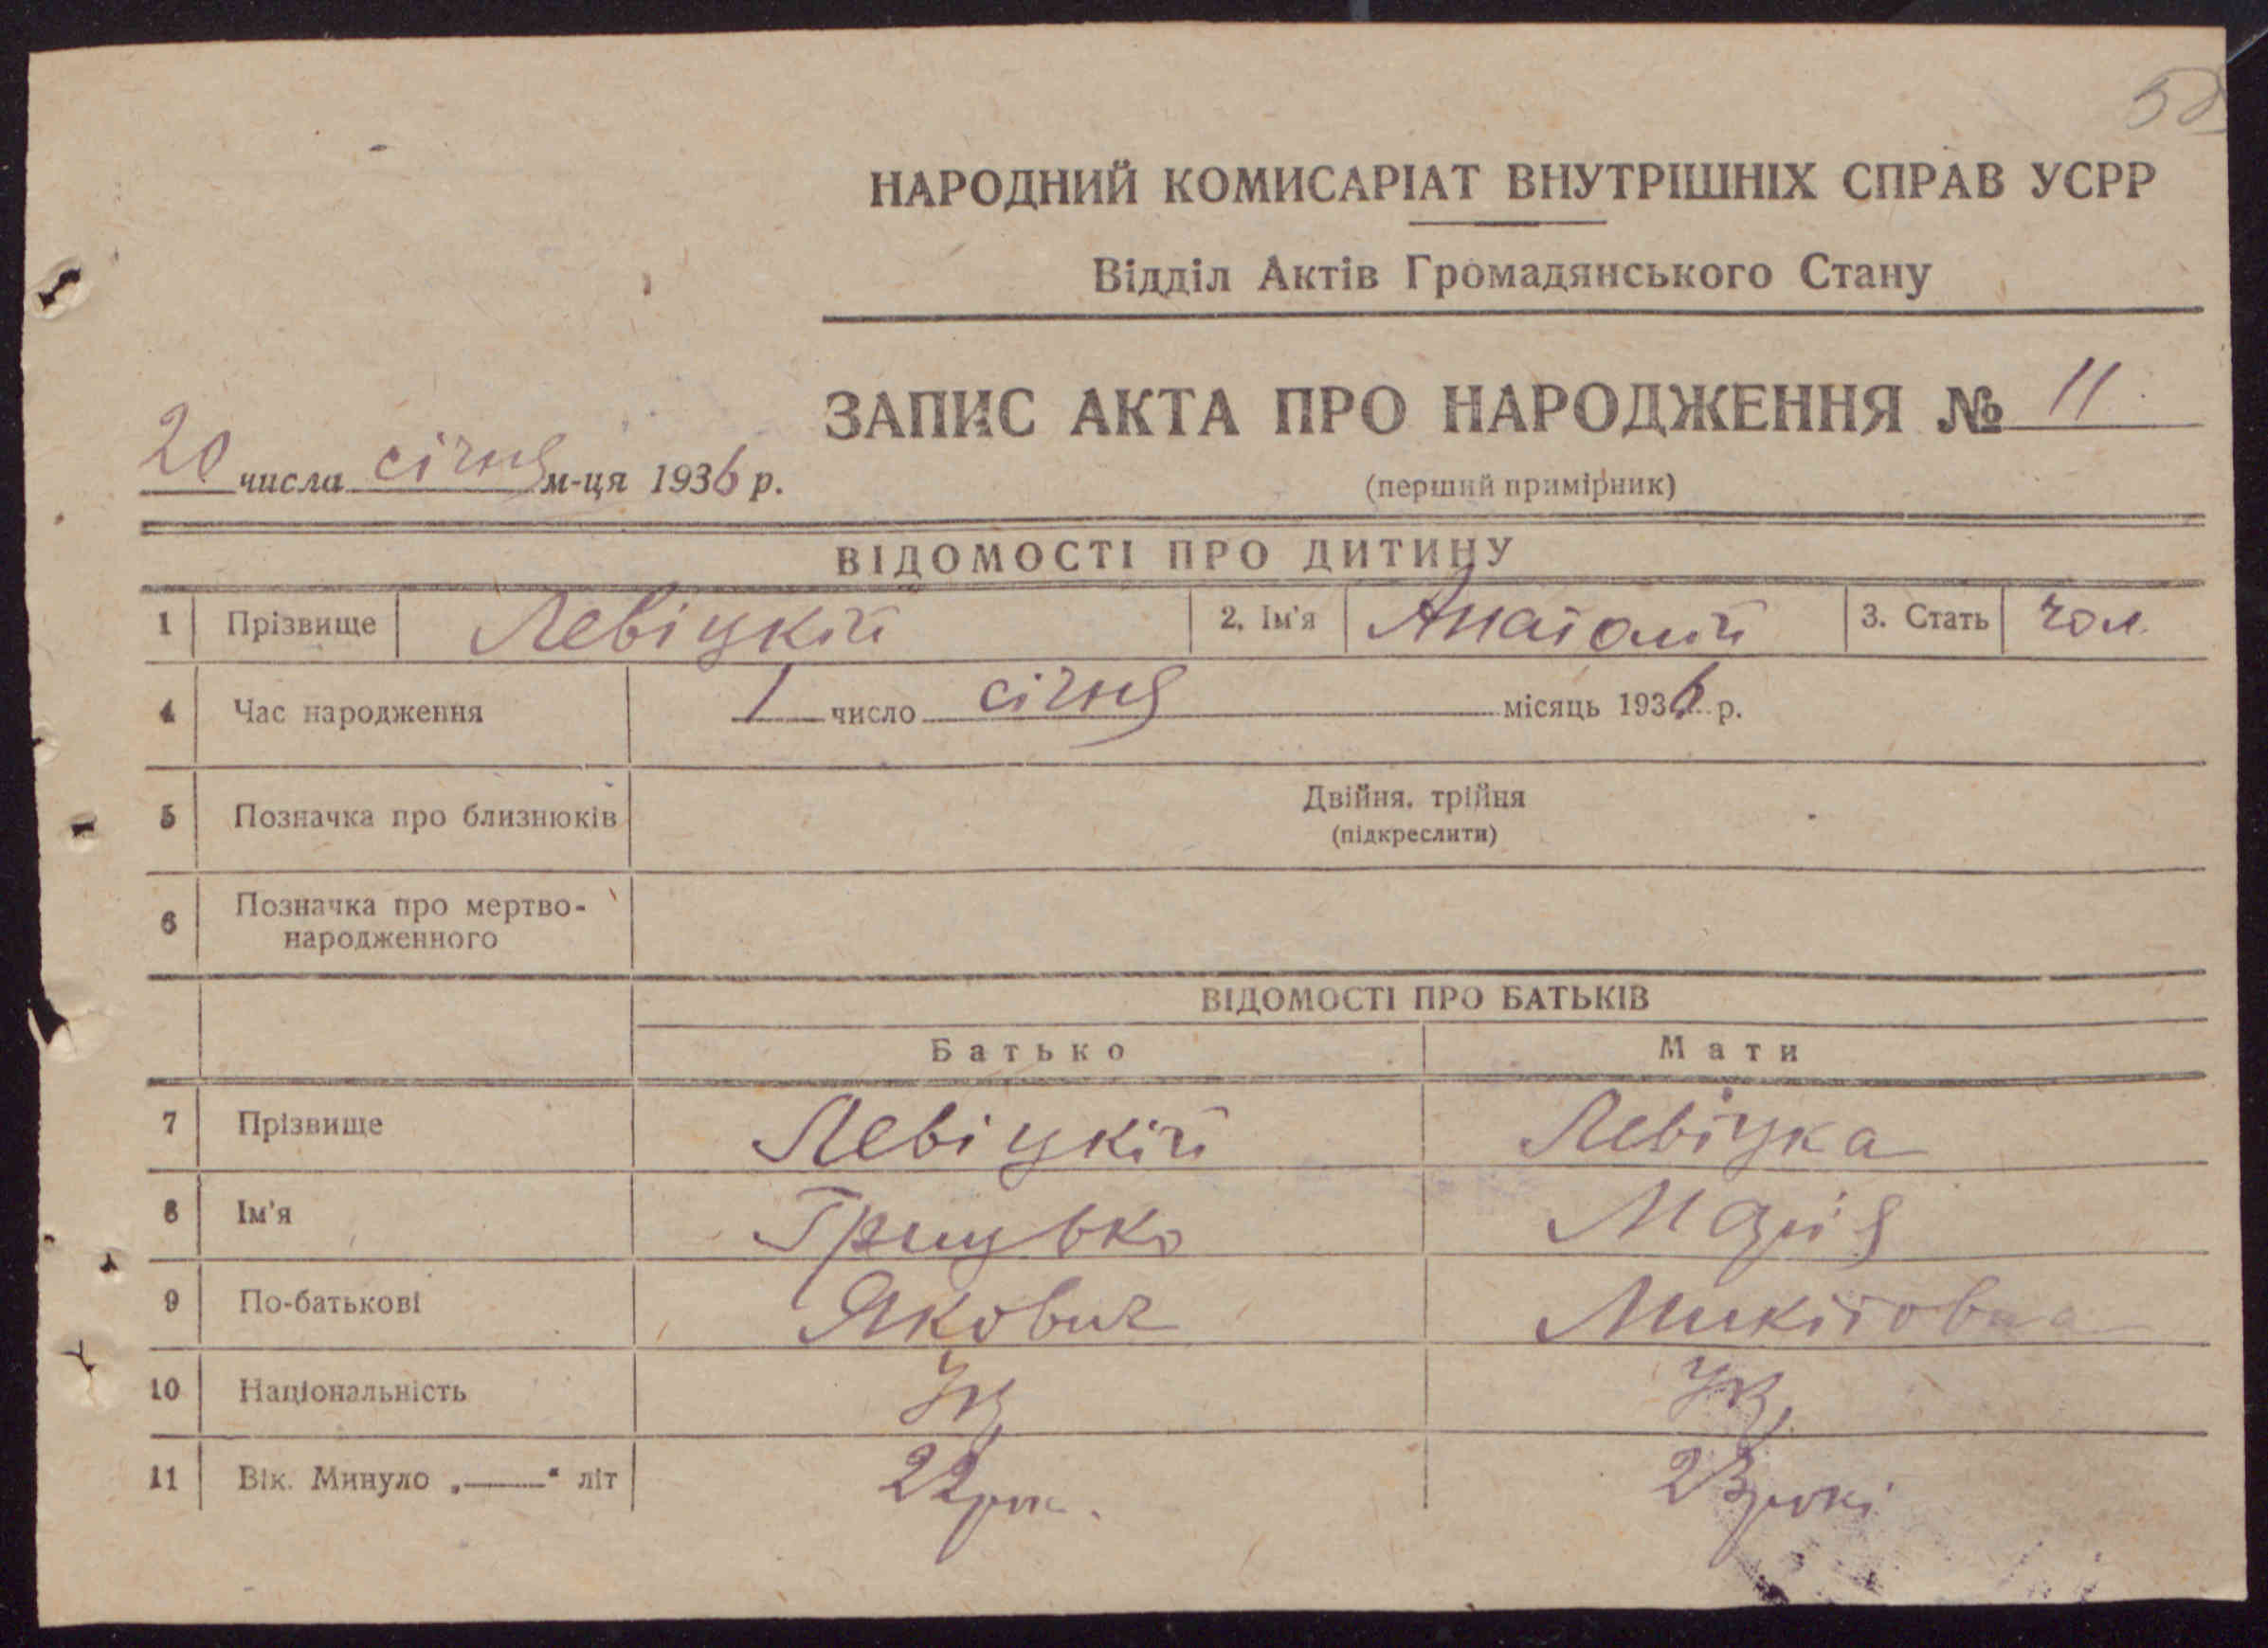 НАРОДНИЙ КОМИСАРІАТ ВНУТРІШНІХ СПРАВ УСРР
Відділ Актів Громадянського Стану
ЗАПИС АКТА ПРО НАРОДЖЕННЯ № 11
20 числа січня м-ця 1936 р.
(перший примірник)
ВІДОМОСТІ ПРО ДИТИНУ
1 Прізвище Левіцкій 2. Ім'я Анатолій 3. Стать чол.
4 Час народження 1 число січня місяць 1936 р.
5 Позначка про близнюків Двійня, трійня
(підкреслити)
6 Позначка про мертво-
народженного
ВІДОМОСТІ ПРО БАТЬКІВ
Батько Мати
7 Прізвище Левіцкій Левіцка
8 Ім'я Грицько Марія
9 По-батькові Якович Микітовна
10 Національність Ук Ук
11 Вік. Минуло „——“ літ 22 рок. 23 рокі